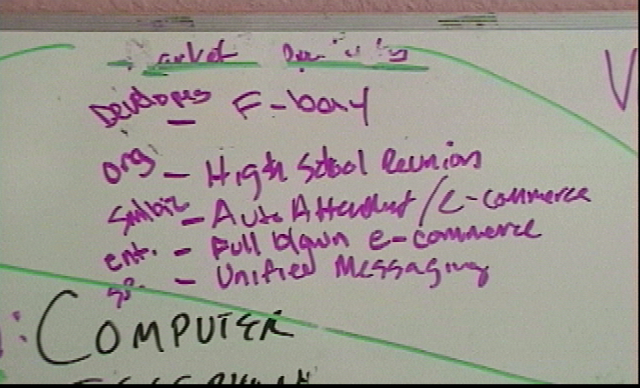 Market
Developers - E-bay
org - High School Reunion
Smlbiz - Auto Attendant / E-commerce
ent. - Full blown e-commerce
sp. - Unified Messaging
V
: COMPUTER